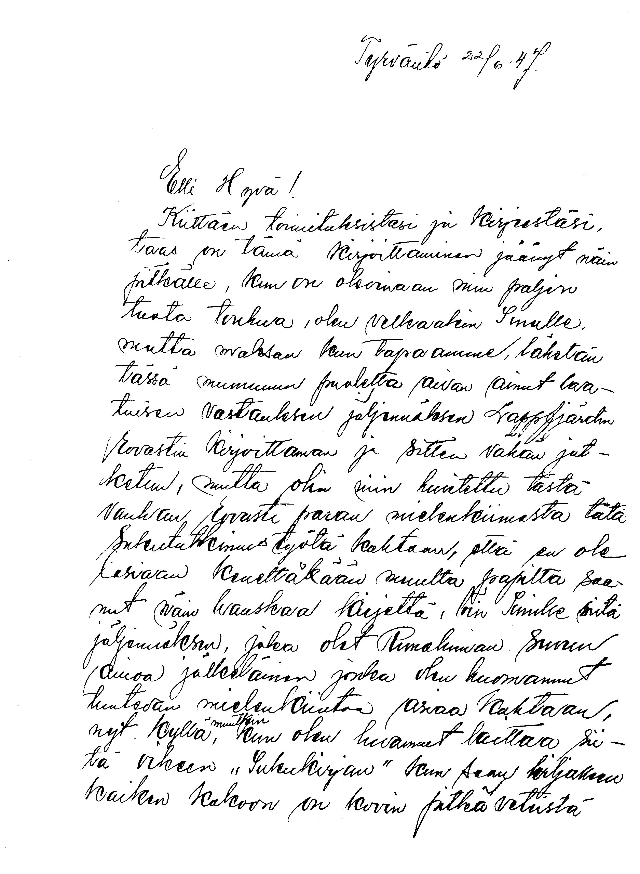 Tyrväntö 22/6.47.
Elli Hyvä!
Kiittäen toimituksistasi ja kirjeestäsi,
taas on tämä kirjoittaminen jäänyt näin
pitkälle, kun on olevinaan niin paljon
tuota touhua, olen velkaakin Sinulle,
mutta maksan kun tapaamme, lähetän
tässä muuunun puoletta aivan ainut laa-
tuisen vastauksen jäljennöksen Lappfjärdin
Rovastin kirjoittaman ja sitten vähän jat-
ketun, mutta olin niin huvitettu tästä
vanhan rovasti paran mielenkiinnosta tätä
sukututkimustyötä kohtaan, että en ole
asiaan keneltäkään muulta papilta saa-
nut näin hauskaa kirjettä, niin Sinulle siitä
jäljennöksen, joka olet suvun
ainoa jälkeläinen jonka olen huomannut
tuntevan mielenkiintoa asiaa kohtaan,
nyt. Kyllä muutkin, kun olen luvannut laittaa sii-
tä oikeen „Sukukirjan" kun saan kirjaksen
kaiken kokoon on kovin pitkä vetoistä